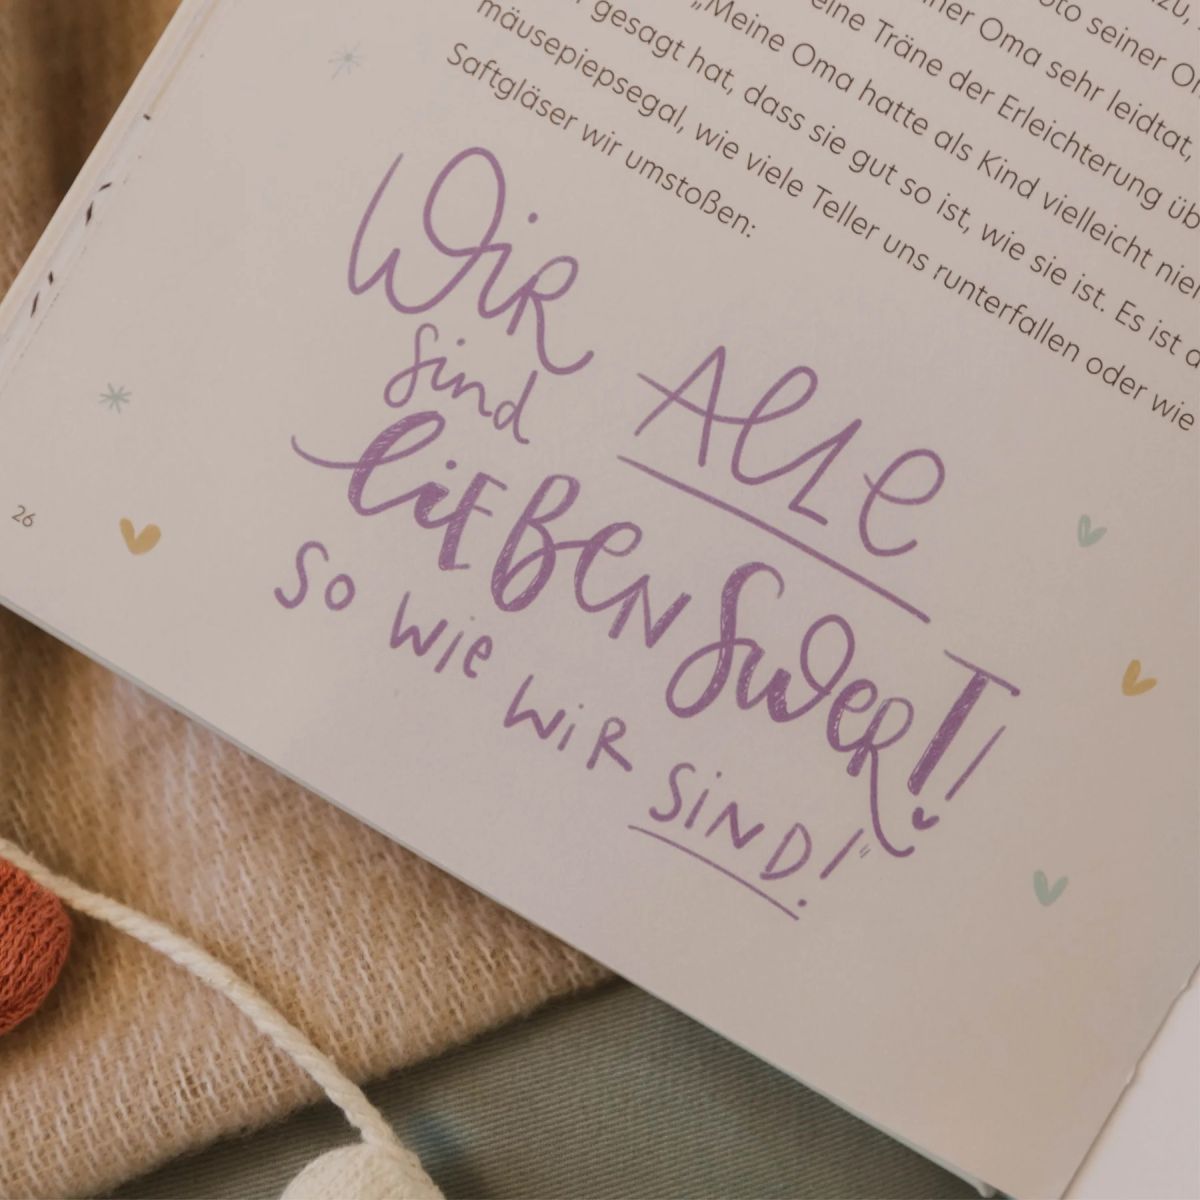 zu,
oto seiner O
eine Träne der Erleichterung üb
ner Oma sehr leidtat,
„Meine Oma hatte als Kind vielleicht nie
gesagt hat, dass sie gut so ist, wie sie ist. Es ist
mäusepiepsegal, wie viele Teller uns runterfallen oder wie
Saftgläser wir umstoßen:
WiR
sind ALLe
LiEBENSWERT!
SO Wie WiR SiND!“
26